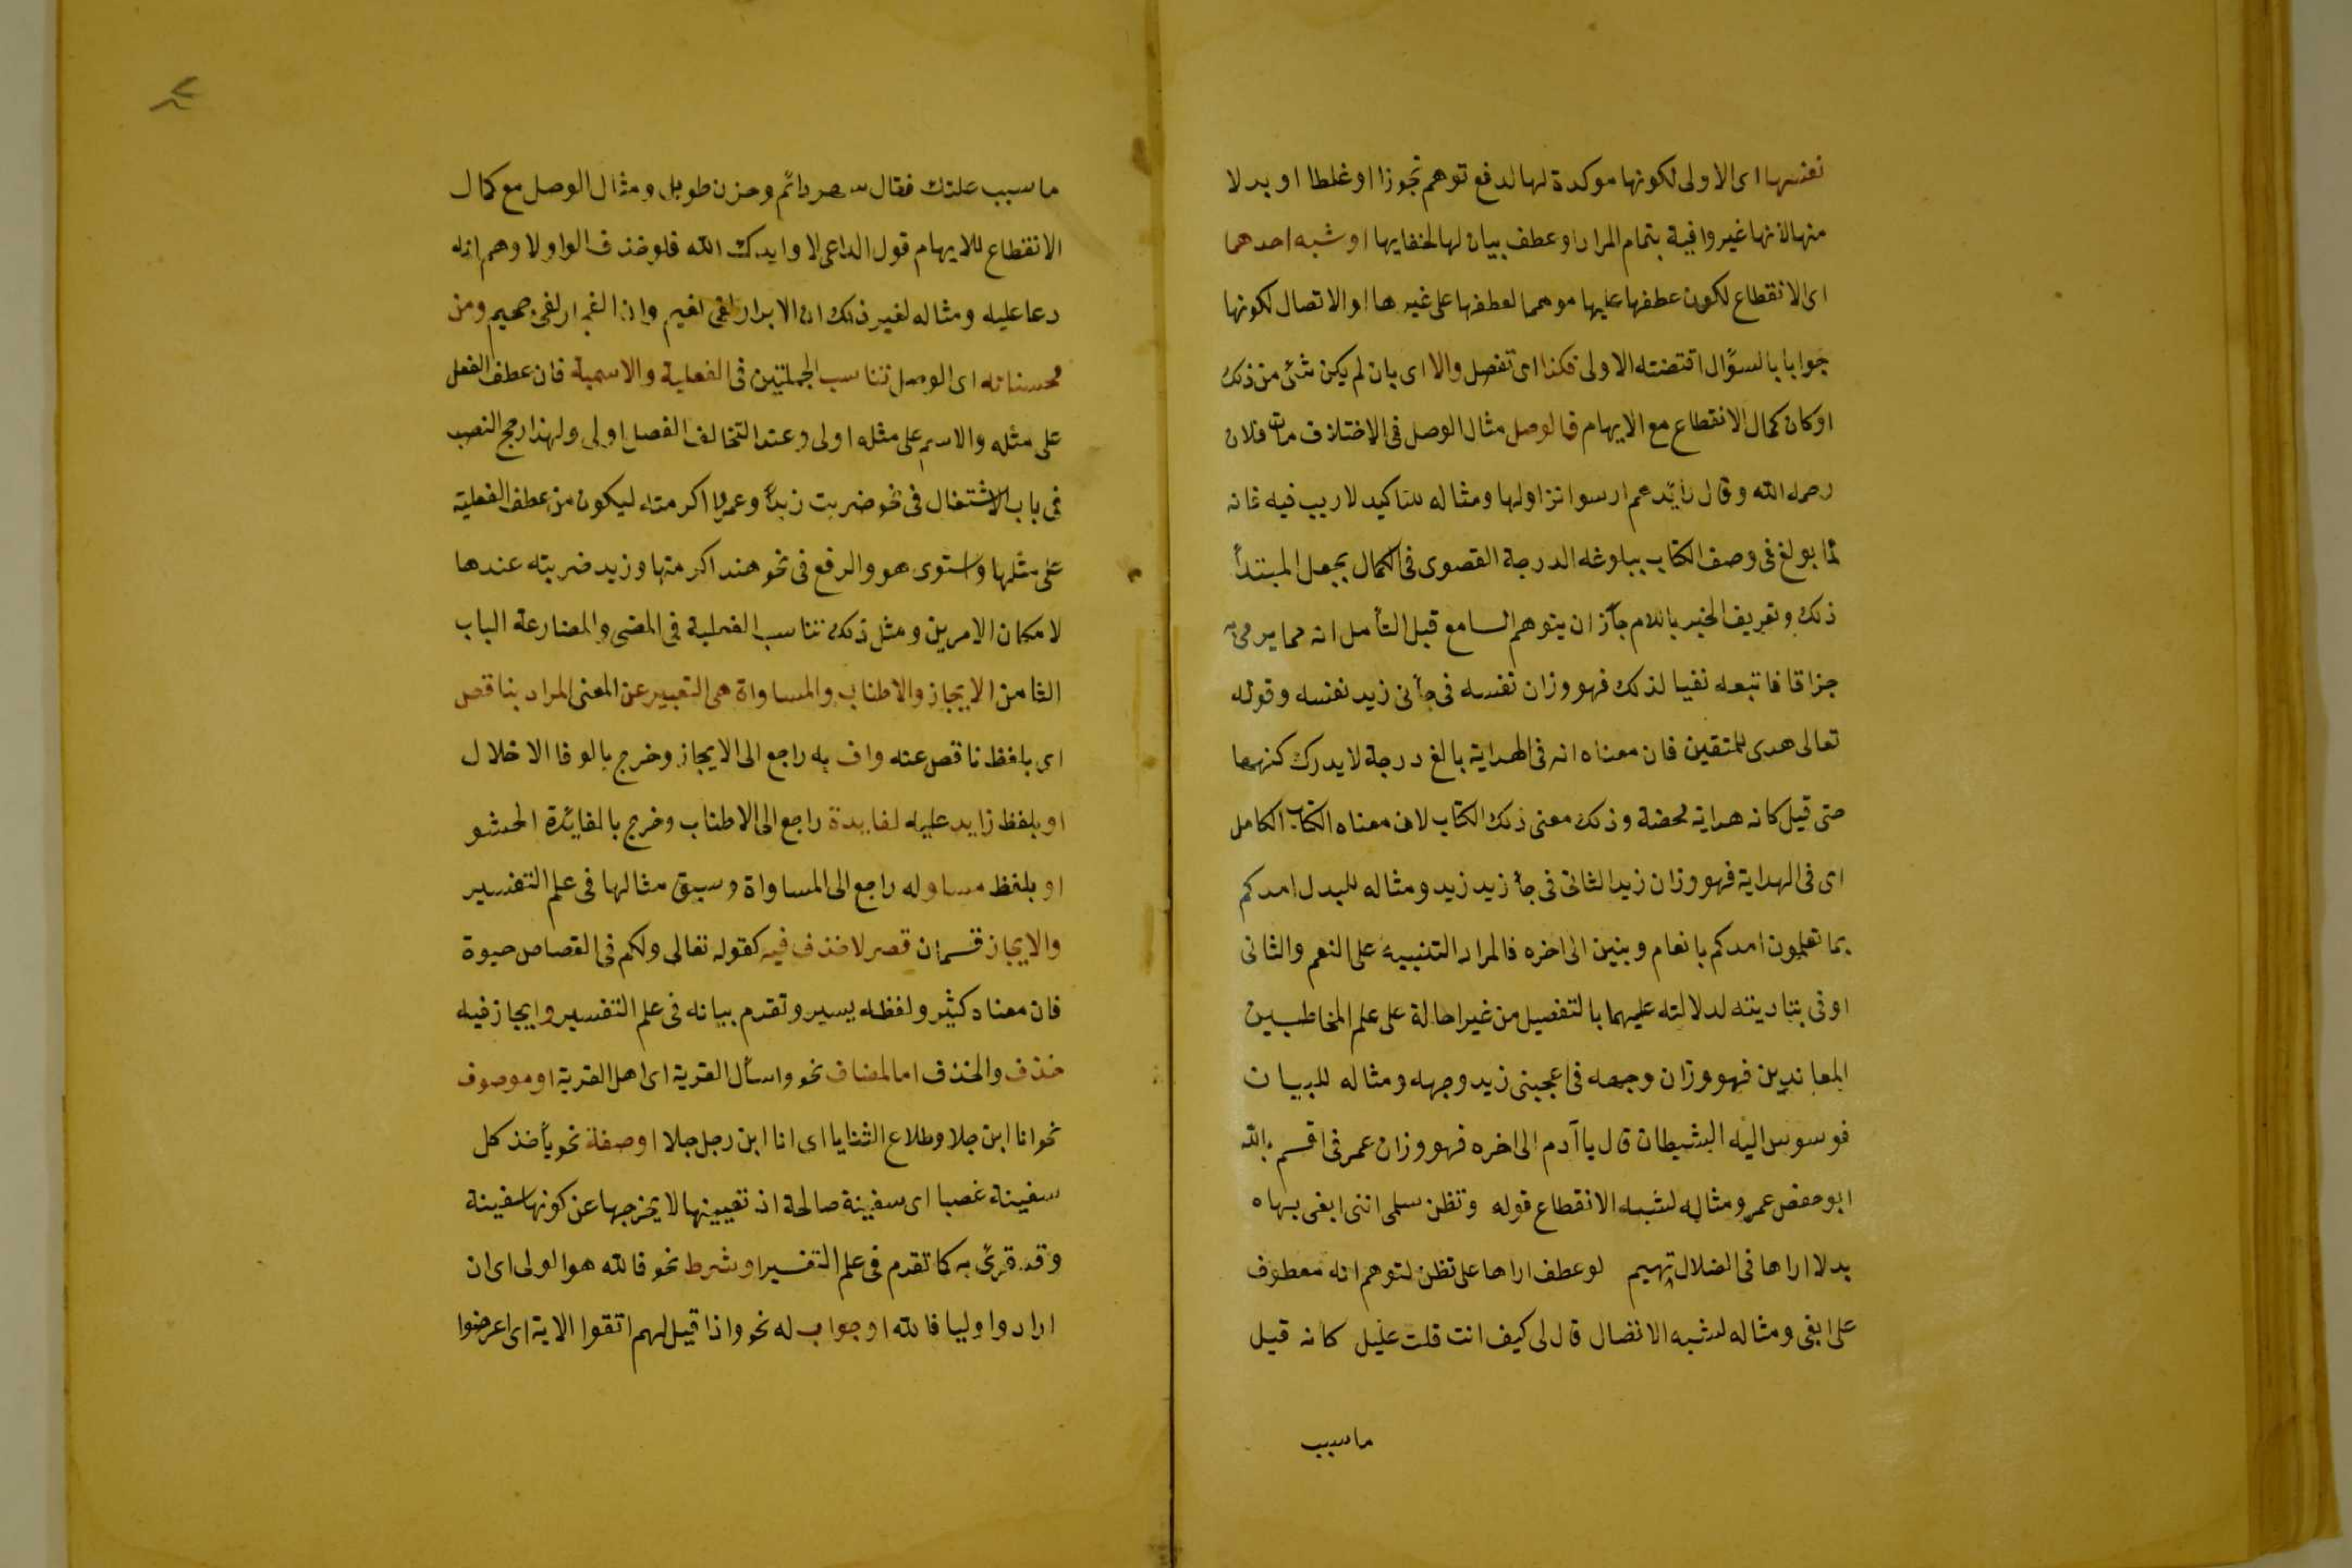 نفسها اى الاولى لكونها موكدة لها لدفع توهم تجوزا او غلطا او بدلا
منها لانها غير وافية بتمام المراد او عطف بيان لها لخفايها او شبه احدهما
اى الانقطاع لكون عطفها عليها موهما لعطفها على غيرها او الاتصال لكونها
جوابا بالسؤال اقتضته الاولى فكذا اى تفصل والا اى بان لم يكن شئ من ذلك
او كان كمال الانقطاع مع الايهام فالوصل مثال الوصل فى الاختلاف مات فلان
رحمه الله وقال رائدهم ارسوا نزاولها ومثاله للتاكيد لا ريب فيه فانه
لما بولغ فى وصف الكتاب ببلوغه الدرجة القصوى فى الكمال بجعل المبتدأ
ذلك وتعريف الخبر باللام جاز ان يتوهم السامع قبل التأمل انه مما يرمى به
جزافا فاتبعه نفيا لذلك فهو وزان نفسه فى جأنى زيد نفسه وقوله
تعالى هدى للمتقين فان معناه انه فى الهداية بالغ درجة لا يدرك كنهها
حتى قيل كانه هداية محضة وذلك معنى ذلك الكتاب لان معناه الكتاب الكامل
اى فى الهداية فهو وزان زيد الثانى فى جأ زيد زيد ومثاله للبدل امدكم
بما تعلمون امدكم بانعام وبنين الى اخره فالمراد التنبيه على النعم والثانى
اوفى بتاديته لدلالته عليهما بالتفصيل من غير احالة على علم المخاطبين
المعاندين فهو وزان وجهه فى اعجبنى زيد وجهه ومثاله للبيان
فوسوس اليه الشيطان قال يا آدم الى اخره فهو وزان عمر فى اقسم بالله
ابو حفص عمر ومثاله لشبه الانقطاع قوله وتظن سلمى اننى ابغى بها ه
بدلا اراها فى الضلال تهيم لو عطف اراها على تظن لتوهم انه معطوف
على ابغى ومثاله لشبه الاتصال قال لى كيف انت قلت عليل كانه قيل
ماسبب
ما سبب علتك فقال سهر دائم وحزن طويل ومثال الوصل مع كمال
الانقطاع للايهام قول الداعى لا وايدك الله فلو حذف الواو لاوهم انه
دعا عليه ومثاله لغير ذلك ان الابرار لفى نعيم وان الفجار لفى جحيم ومن
محسناته اى الوصل تناسب الجملتين فى الفعلية والاسمية فان عطف الفعل
على مثله والاسم على مثله اولى وعند التخالف الفصل اولى ولهذا رجح النصب
فى باب الاشتغال فى نحو ضربت زيدا وعمرا اكرمته ليكون من عطف الفعلية
على مثلها واستوى هو والرفع فى نحو هند اكرمتها وزيد ضربته عندها
لامكان الامرين ومثل ذلك تناسب الفعلية فى المضى والمضارعة الباب
الثامن الايجاز والاطناب والمساواة هى التعبير عن المعنى المراد بناقص
اى بلفظ ناقص عنه واف به راجع الى الايجاز وخرج بالوفا الاخلال
او بلفظ زايد عليه لفايدة راجع الى الاطناب وخرج بالفائدة الحشو
او بلفظ مساو له راجع الى المساواة وسبق مثالها فى علم التفسير
والايجاز قسمان قصر لا حذف فيه كقوله تعالى ولكم فى القصاص حيوة
فان معناه كثير ولفظه يسير وتقدم بيانه فى علم التفسير وايجاز فيه
حذف والحذف اما لمضاف نحو واسأل القرية اى اهل القرية او موصوف
نحو انا ابن جلا وطلاع الثنايا اى انا ابن رجل جلا او صفة نحو يأخذ كل
سفينة غصبا اى سفينة صالحة اذ تعييبها لا يخرجها عن كونها سفينة
وقد قرئ به كما تقدم فى علم التفسير او شرط نحو فالله هو الولى اى ان
ارادوا وليا فالله او جواب له نحو واذا قيل لهم اتقوا الاية اى اعرضوا